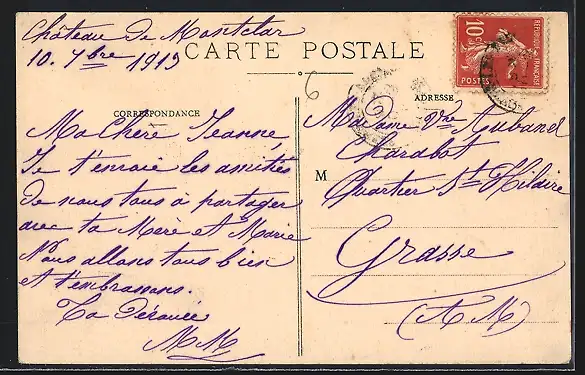 Château de Montclar
10. 7bre 1913
CARTE POSTALE
6
CORRESPONDANCE
ADRESSE
RÉPUBLIQUE FRANÇAISE
10c
POSTES
Ma Chère Jeanne,
Je t'envoie les amitiés
de nous tous à partager
avec ta Mère et Marie
Nous allons tous bien
et t'embrassons.
Ta Dévouée
MM
Madame Vve Aubanel
Charabot
M
Quartier St Hilaire
Grasse
(A M)